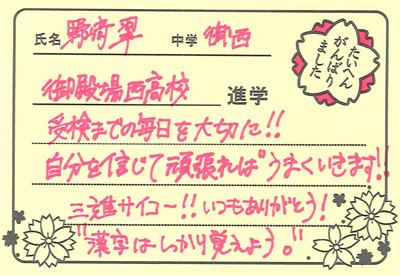 氏名 野崎翠 中学 御西
たいへん
がんばり
ました
御殿場西高校 進学
受検までの毎日を大切に!!
自分を信じて頑張ればうまくいきます!!
三進サイコー!!いつもありがとう!
"漢字はしっかり覚えよう。"